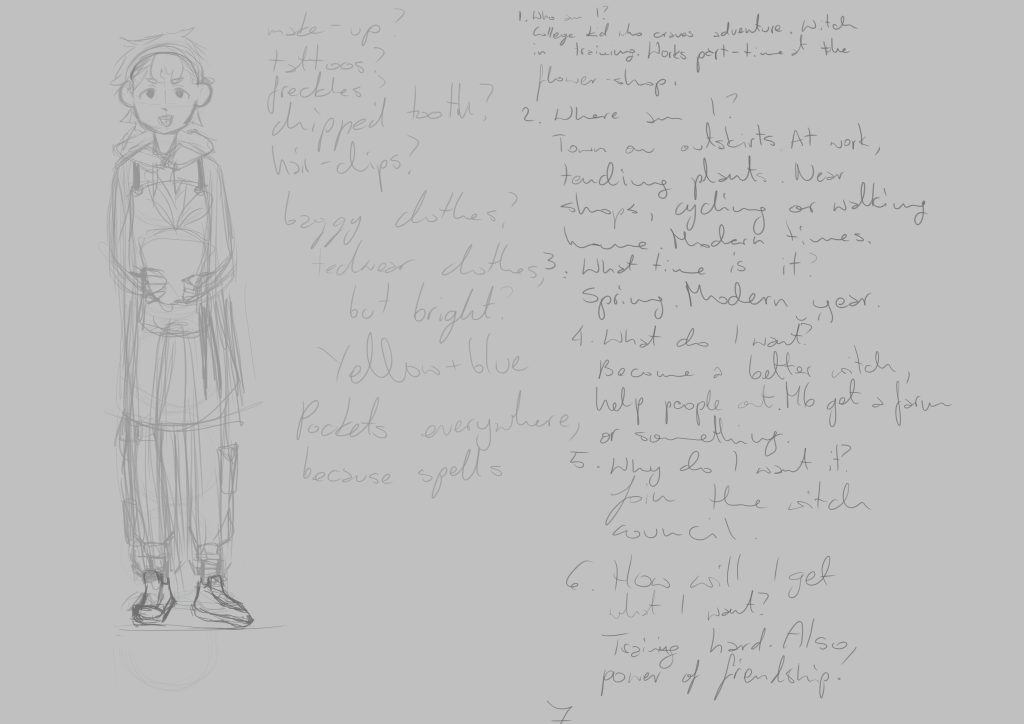 make-up?
tattoos?
freckles?
chipped tooth?
hair-clips?
baggy clothes?
techwear clothes,
but bright?
Yellow + blue
Pockets everywhere,
because spells
1. Who am I?
College kid who craves adventure. Witch
in training. Works part-time at the
flower-shop.
2. Where am I?
Town on outskirts. At work,
tending plants. Near
shops, cycling or walking
home. Modern times.
3. What time is it?
Spring. Modern year.
4. What do I want?
Become a better witch,
help people out. Mb get a farm
or something.
5. Why do I want it?
Join the witch
council.
6. How will I get
what I want?
Training hard. Also,
power of friendship.
7